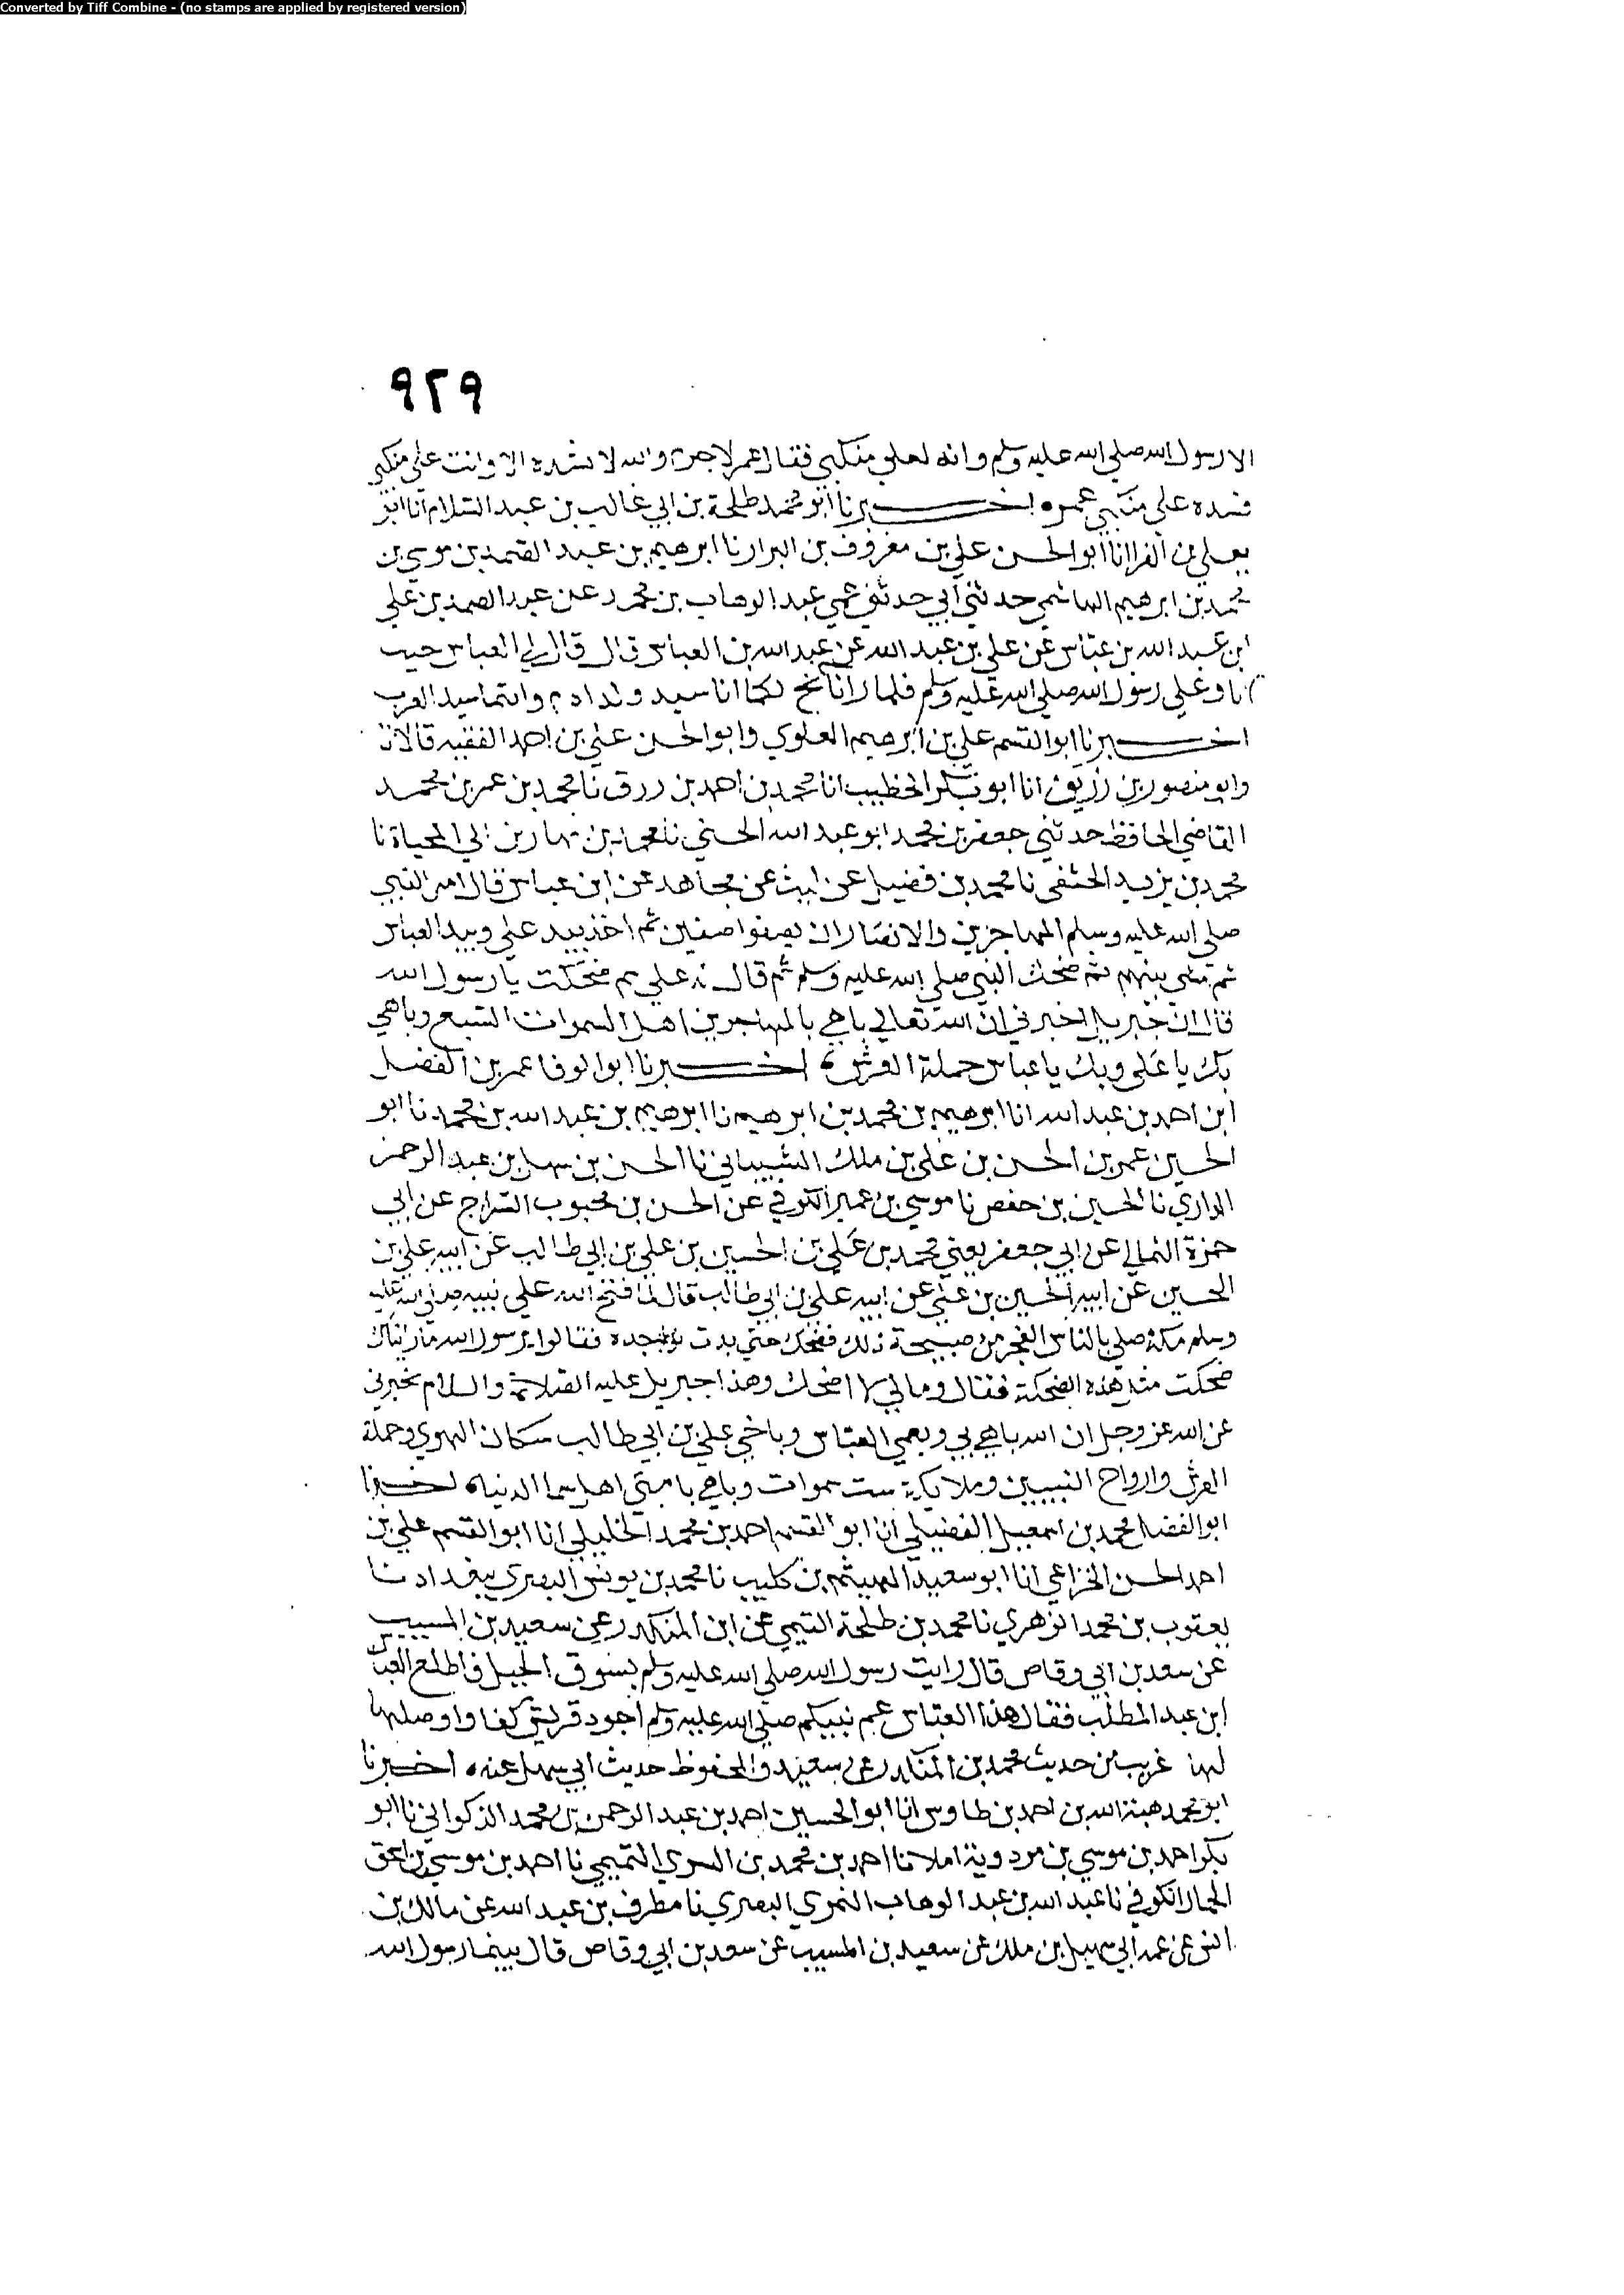 Converted by Tiff Combine - (no stamps are applied by registered version)
٩٢٩
الا رسول الله صلى الله عليه وسلم وانه لعلى منكبي فقال عمر لا جرم والله لا تشده الا وانت على منكبي
فشده على منكبي عمره اخبرنا ابو محمد طلحة بن ابي غالب بن عبد السلام انا ابو
يعلى بن الفرا انا ابو الحسن علي بن معروف بن البزار نا ابرهيم بن عبد الصمد بن موسى بن
محمد بن ابرهيم الهاشمي حدثني ابي حدثني عمي عبد الوهاب بن محمد عن عبد الصمد بن علي
ابن عبد الله بن عباس عن علي بن عبد الله عن عبد الله بن العباس قال قال لي العباس جيت
انا وعلي رسول الله صلى الله عليه وسلم فلما رانا بخ لكما انا سيد ولد ادم وانتما سيدا العرب
اخبرنا ابو القسم علي بن ابرهيم العلوي وابو الحسن علي بن احمد الفقيه قالا نا
وابو منصور بن زريق انا ابو بكر الخطيب انا محمد بن احمد بن رزق نا محمد بن عمر بن محمد
القاضي الحافظ حدثني جعفر بن محمد ابو عبد الله الحسني نا محمد بن نهار بن ابي المحياة نا
محمد بن يزيد الحنفي نا محمد بن فضيل عن ليث عن مجاهد عن ابن عباس قال امر النبي
صلى الله عليه وسلم المهاجرين والانصار ان يصفوا صفين ثم اخذ بيد علي وبيد العباس
ثم مشى بينهم ثم ضحك النبي صلى الله عليه وسلم ثم قال له علي مم ضحكت يا رسول الله
قال ان جبريل اخبرني ان الله تعالى باهى بالمهاجرين اهل السموات السبع وباهي
بك يا علي وبك يا عباس حملة العرش اخبرنا ابو الوفا عمر بن الفضل
ابن احمد بن عبد الله انا ابرهيم بن محمد بن ابرهيم نا ابرهيم بن عبد الله بن محمد نا ابو
الحسين عمر بن الحسن بن علي بن ملك الشيباني نا الحسن بن سهل بن عبد الرحمن
الداري نا الحسين بن حفص نا موسى بن عمير الكوفي عن الحسن بن محبوب السراج عن ابي
حمزة الثمالي عن ابي جعفر يعني محمد بن علي بن الحسين بن علي بن ابي طالب عن ابيه علي بن
الحسين عن ابيه الحسين بن علي عن ابيه علي بن ابي طالب قال لما فتح الله على نبيه صلى الله عليه
وسلم مكة صلى بالناس الفجر من صبيحة ذلك فضحك حتى بدت نواجده فقالوا يرسول الله ما رايناك
ضحكت مثل هذه الضحكة فقال ومالي لا اضحك وهذا جبريل عليه الصلاة والسلام يخبرني
عن الله عز وجل ان الله باهى بي وبعمي العباس وباخي علي بن ابي طالب سكان الهوي وحملة
العرش وارواح النبيين وملايكة ست سموات وباهى بامتي اهل سما الدنيا اخبرنا
ابو الفضل محمد بن اسمعيل الفضيلي انا ابو القسم احمد بن محمد الخليلي انا ابو القسم علي بن
احمد الحسن الخزاعي انا ابو سعيد الهيثم بن كليب نا محمد بن يونس البصري ببغداد نا
يعقوب بن محمد الزهري نا محمد بن طلحة التيمي عن ابن المنكدر عن سعيد بن المسيب
عن سعد بن ابي وقاص قال رايت رسول الله صلى الله عليه وسلم بسوق الخيل فاطلع العباس
ابن عبد المطلب فقال هذا العباس عم نبيكم صلى الله عليه وسلم اجود قريش كفا واوصلها
لها غريب من حديث محمد بن المنكدر عن سعيد والمحفوظ حديث ابي سهيل عنه اخبرنا
ابو محمد هبة الله بن احمد بن طاوس انا ابو الحسين احمد بن عبد الرحمن بن محمد الذكواني نا ابو
بكر احمد بن موسى بن مردوية املا نا احمد بن محمد بن السري التميمي نا احمد بن موسى بن اسحق
الجمال الكوفي نا عبد الله بن عبد الوهاب النمري البصري نا مطرف بن عبد الله عن مالك بن
انس عن عمه ابي سهيل بن ملك عن سعيد بن المسيب عن سعد بن ابي وقاص قال بينما رسول الله